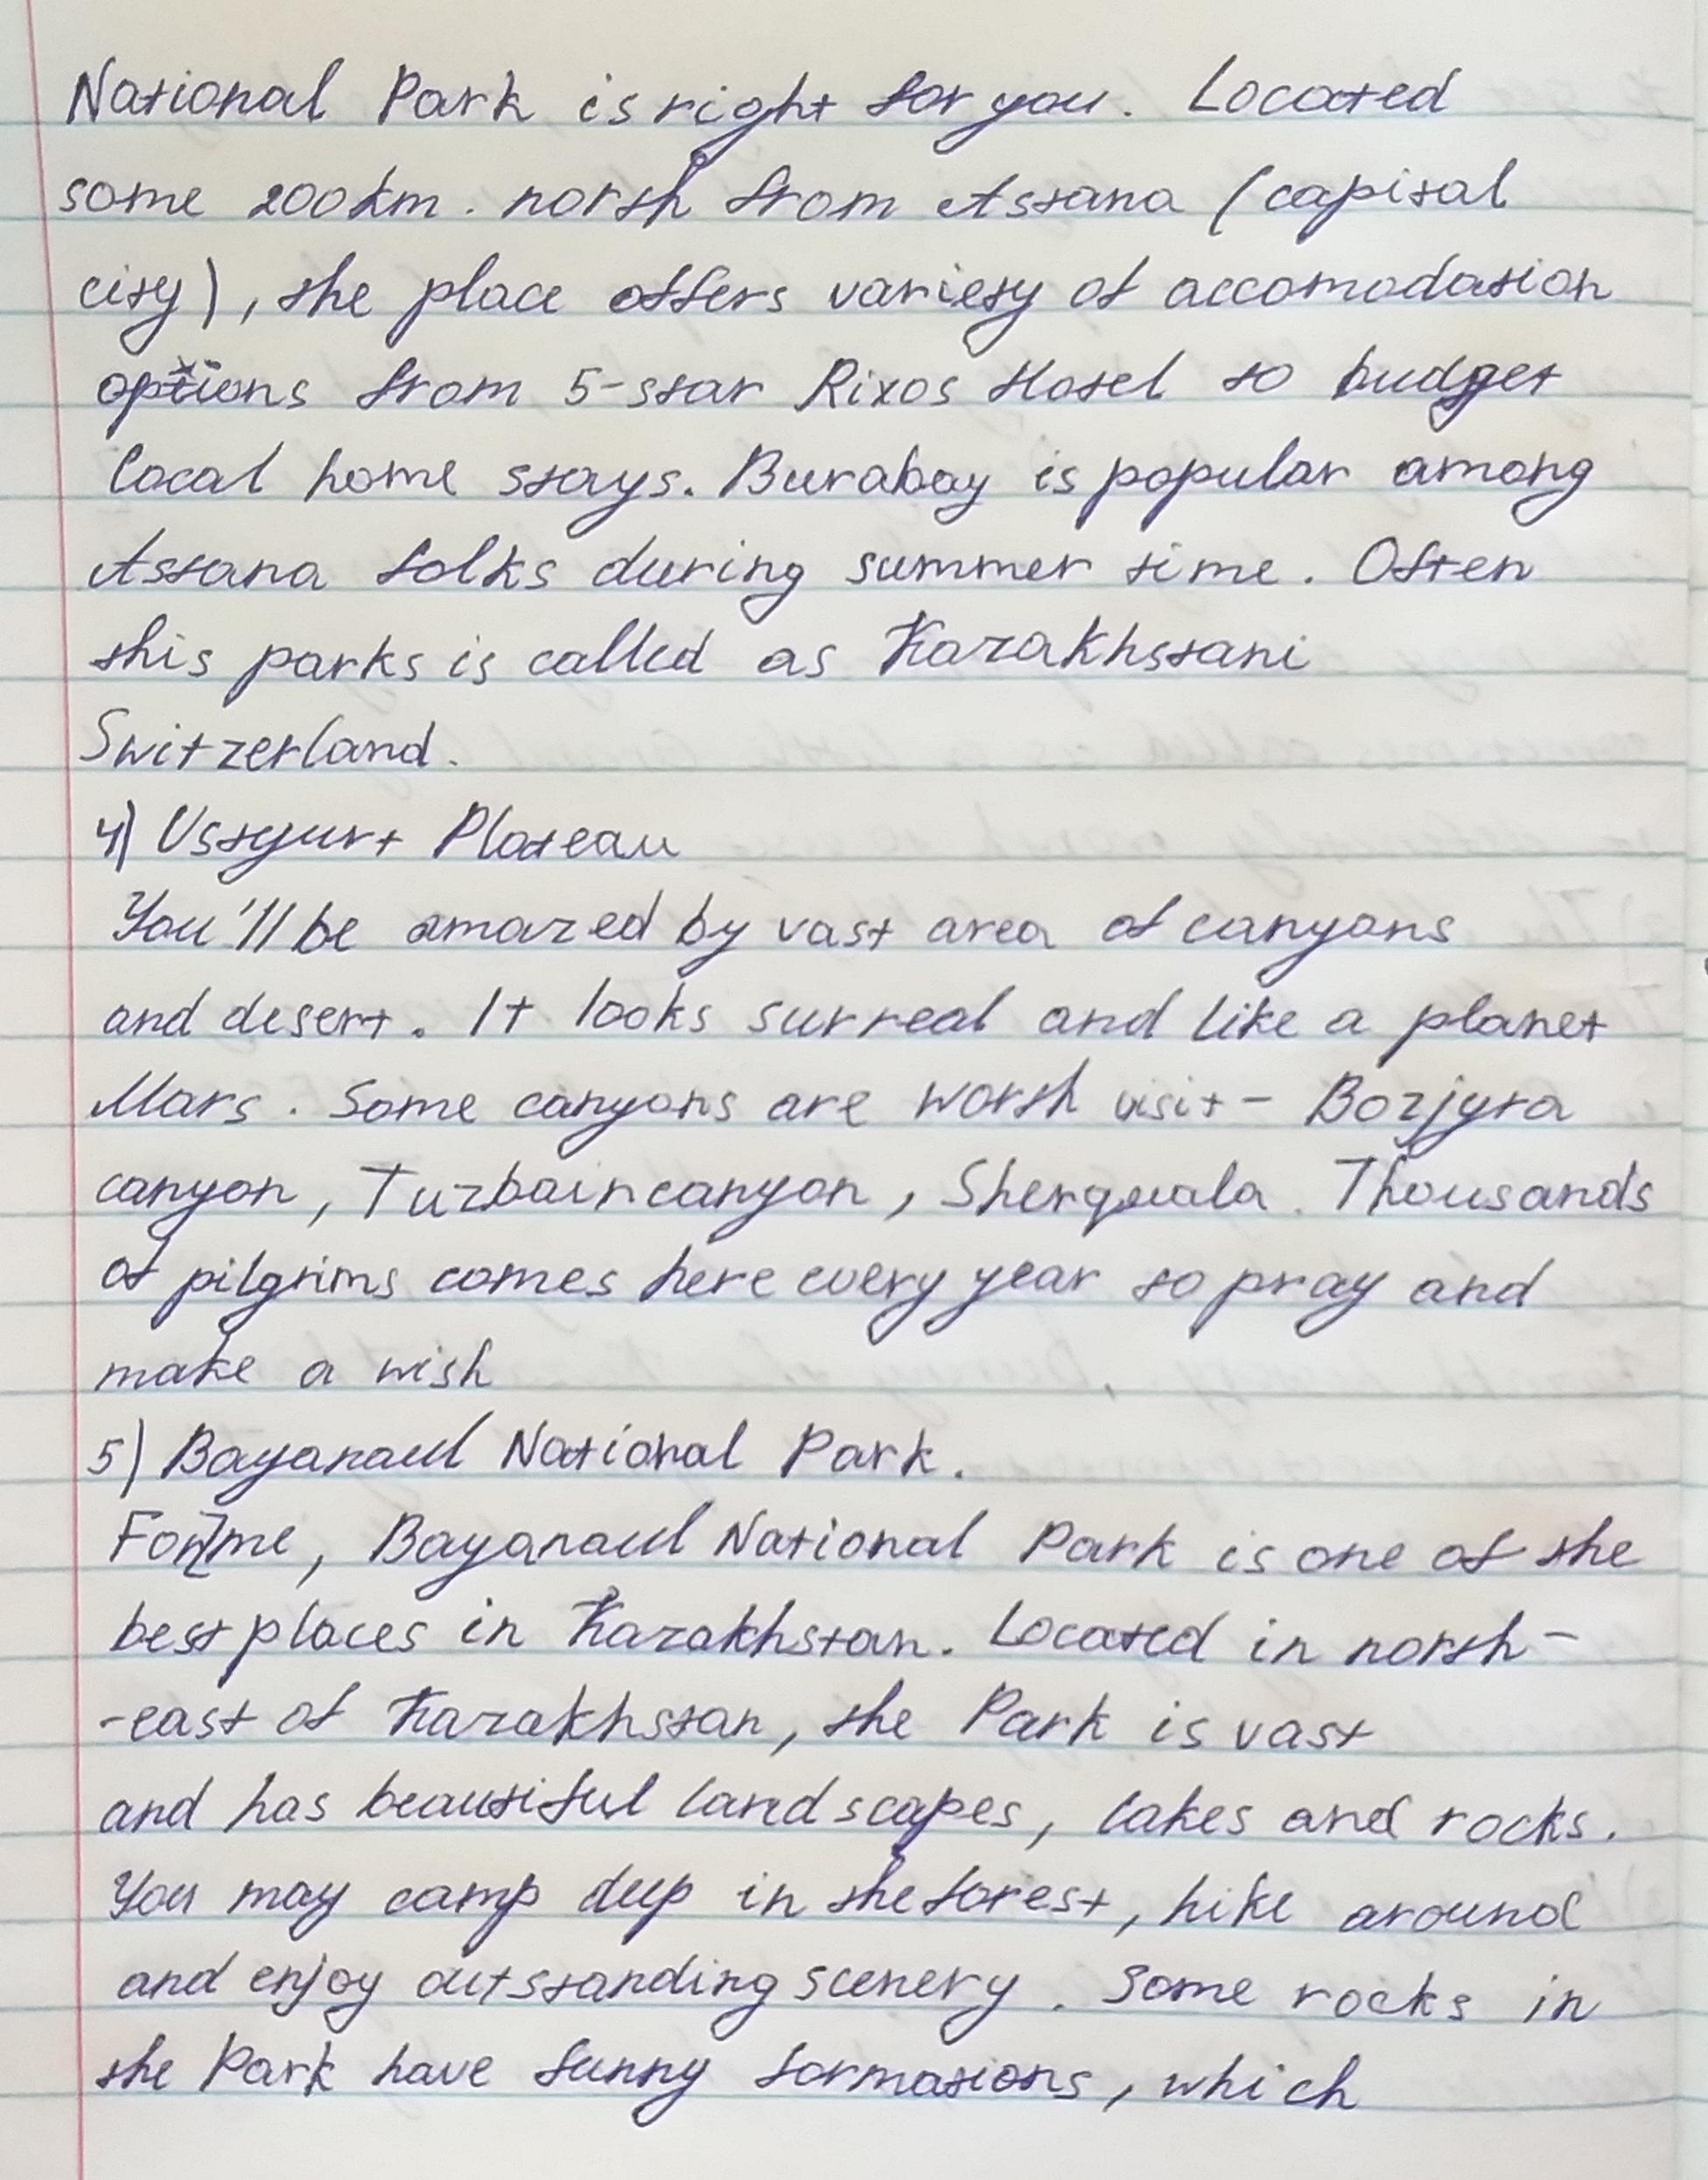 National Park is right for you. Located
some 200km. north from Astana (capital
city), the place offers variety of accomodation
options from 5-star Rixos Hotel to budget
local home stays. Burabay is popular among
Astana folks during summer time. Often
this parks is called as Kazakhstani
Switzerland.
4) Ustyurt Plateau
You'll be amazed by vast area of canyons
and desert. It looks surreal and like a planet
Mars. Some canyons are worth visit - Bozjyra
canyon, Tuzbair canyon, Sherquala. Thousands
of pilgrims comes here every year to pray and
make a wish
5) Bayanaul National Park.
For me, Bayanaul National Park is one of the
best places in Kazakhstan. Located in north-
-east of Kazakhstan, the Park is vast
and has beautiful landscapes, lakes and rocks.
You may camp deep in the forest, hike around
and enjoy outstanding scenery. Some rocks in
the Park have funny formations, which